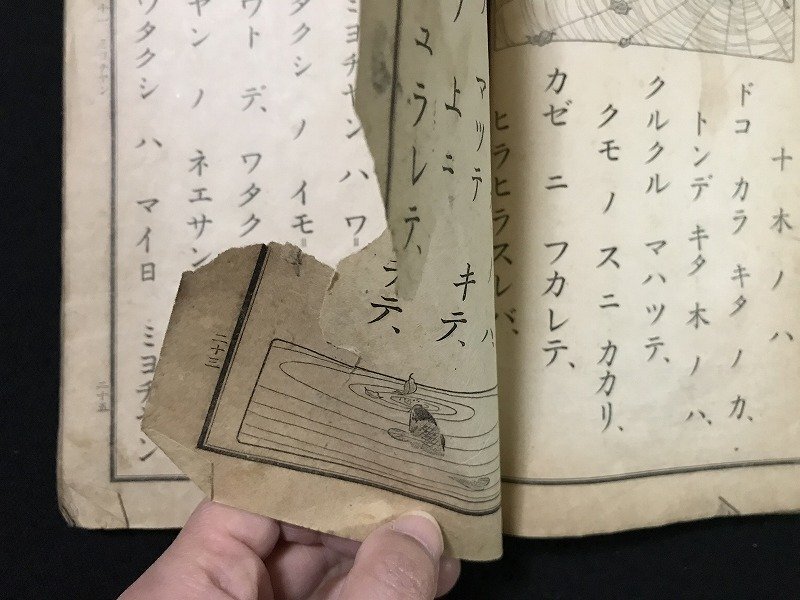 十 木ノハ
ドコ カラ キタ ノ カ、
トンデ キタ 木 ノ ハ、
クルクル マハツテ、
クモ ノ スニ カカリ、
カゼ ニ フカレテ、
ヒラヒラスレバ、
マツテ
上ニ キテ、
ユラレテ、
二十三
ミヨチヤン ハ ワ
タクシ ノ イモ
ウト デ、ワタク
ヤン ノ ネエサン
ワタクシ ハ マイ日 ミヨチヤン
二十五